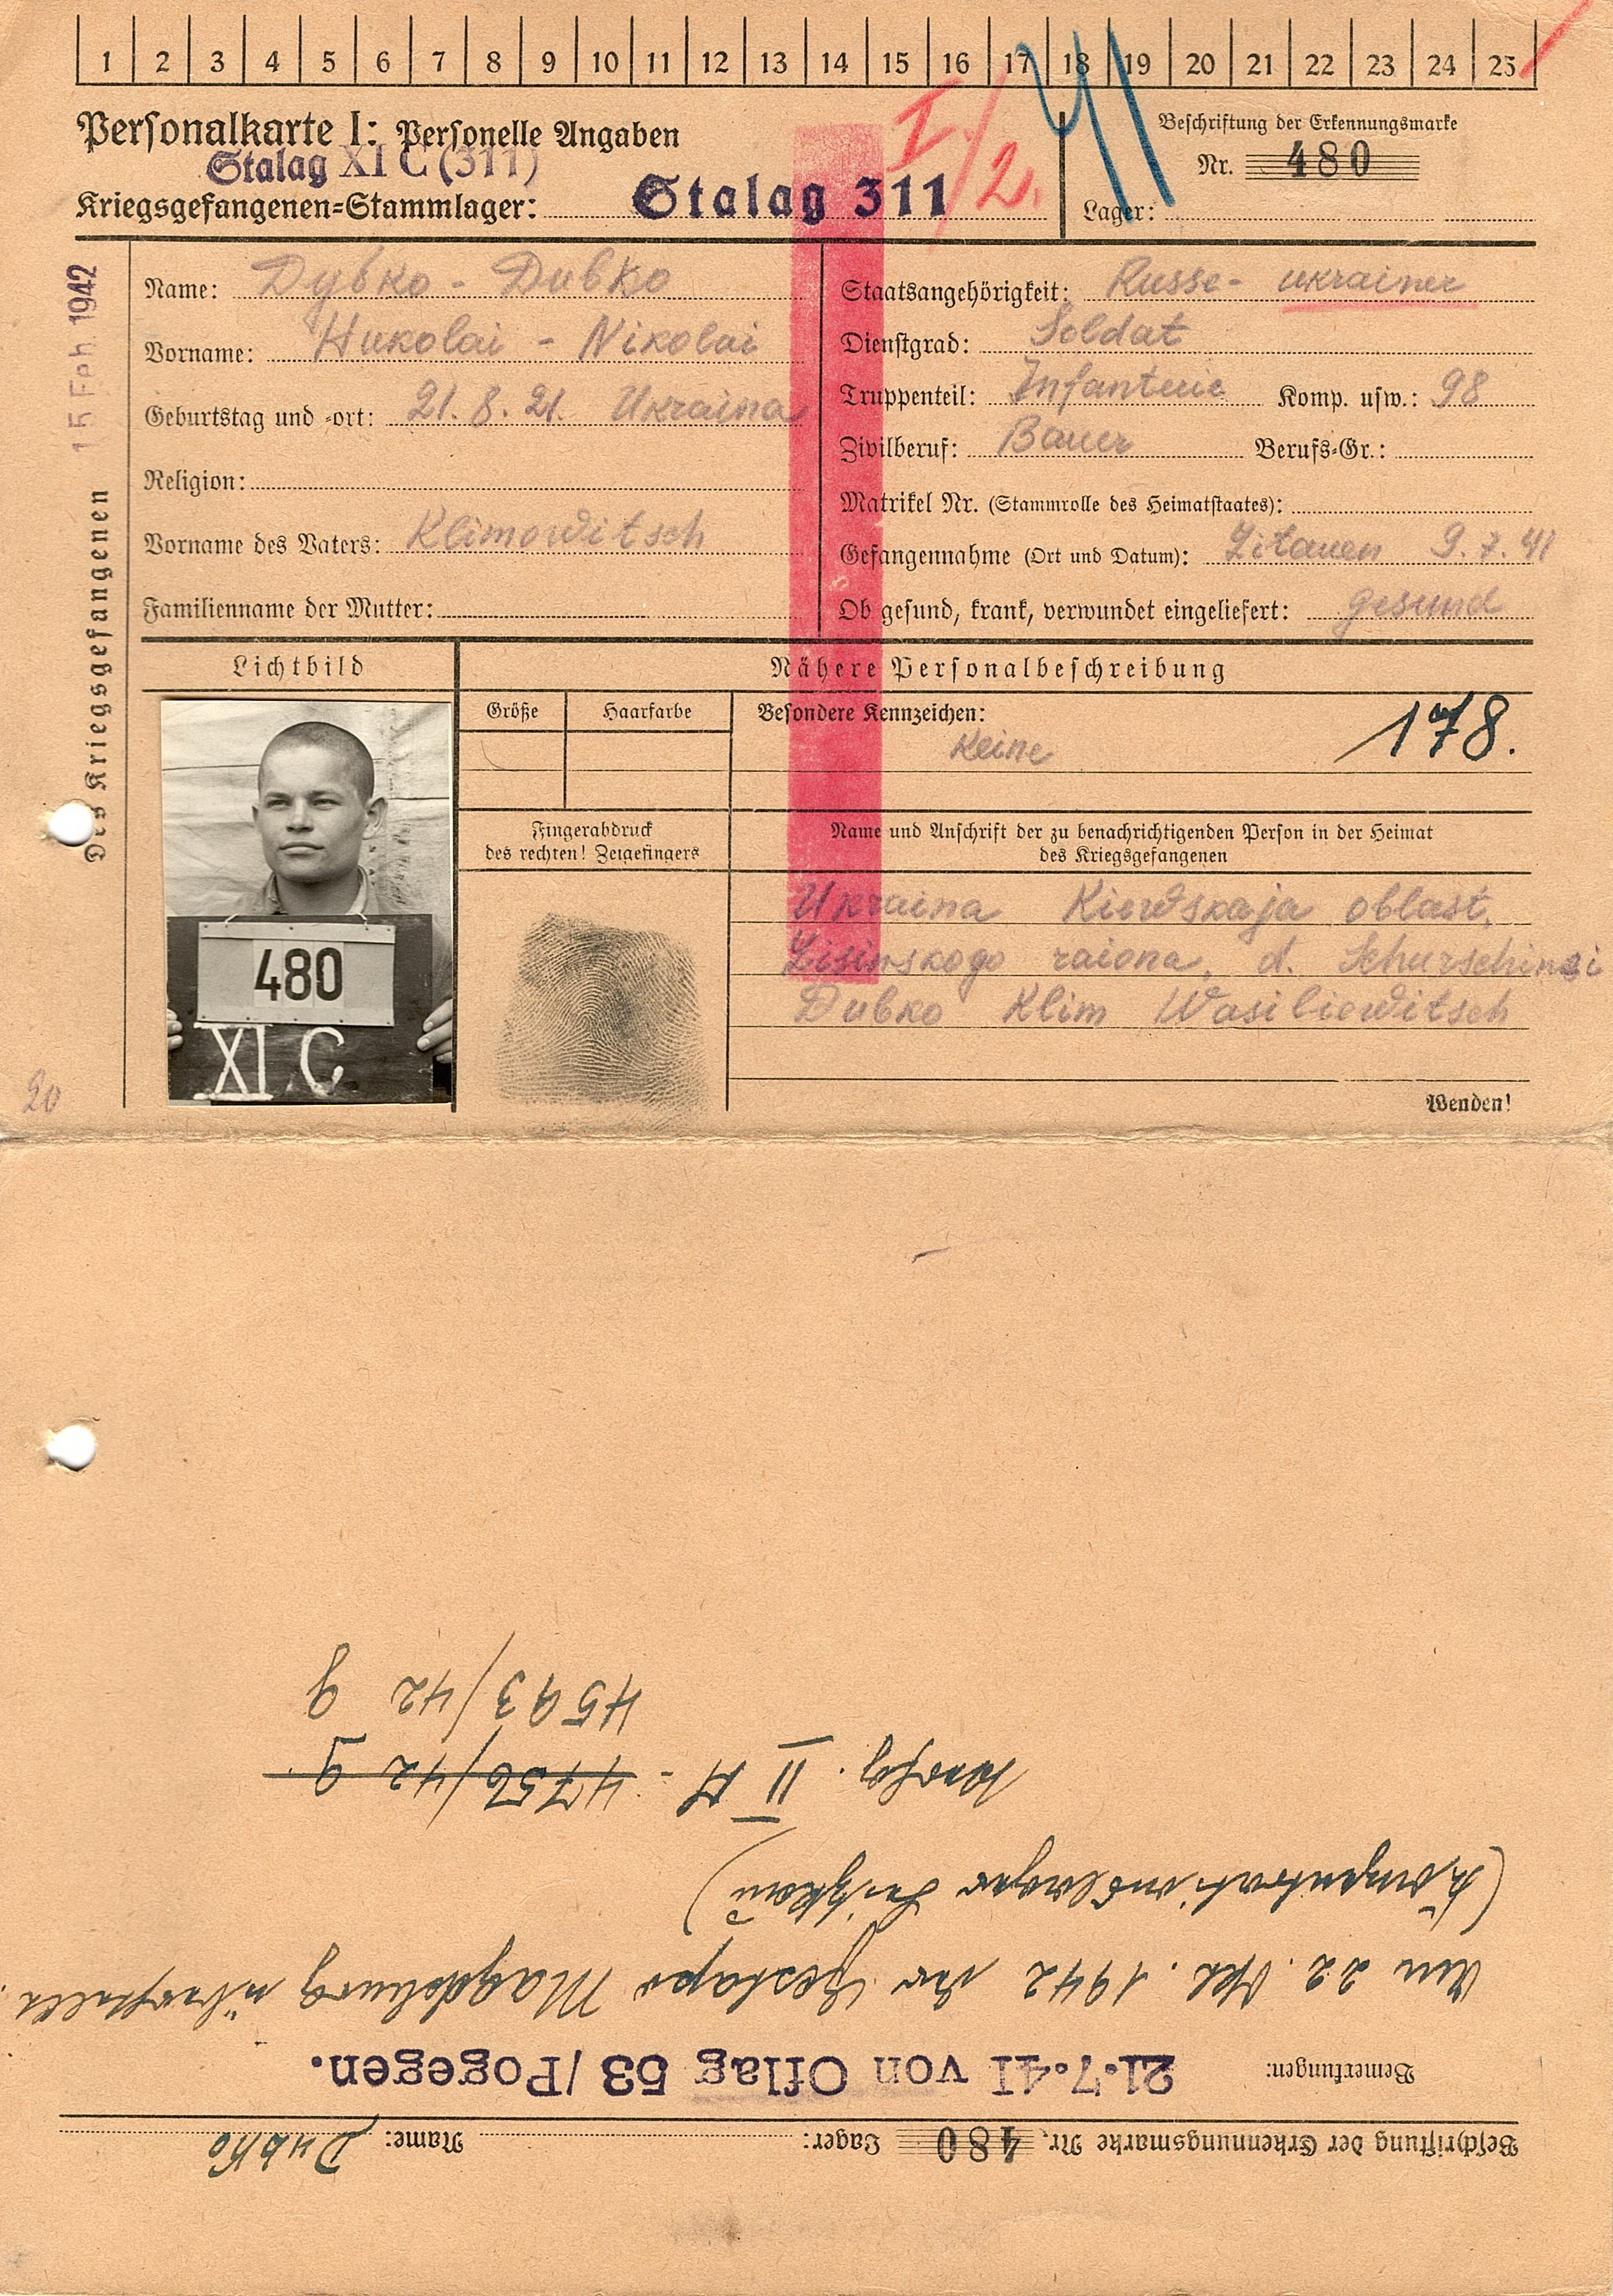 1 2 3 4 5 6 7 8 9 10 11 12 13 14 15 16 17 18 19 20 21 22 23 24 25
Personalkarte I: Personelle Angaben
Stalag XI C (311)
Kriegsgefangenen-Stammlager: Stalag 311
I/2.
41
Beschriftung der Erkennungsmarke
Nr. 480
Lager:
15 Feb. 1942
Des Kriegsgefangenen
Name: Дубко - Dubko
Vorname: Николаi - Nikolai
Geburtstag und -ort: 21.8.21. Ukraina
Religion:
Vorname des Vaters: Klimowitsch
Familienname der Mutter:
Staatsangehörigkeit: Russe- ukrainer
Dienstgrad: Soldat
Truppenteil: Infanterie Komp. usw.: 98
Zivilberuf: Bauer Berufs-Gr.:
Matrikel Nr. (Stammrolle des Heimatstaates):
Gefangennahme (Ort und Datum): Litauen 9.7.41
Ob gesund, krank, verwundet eingeliefert: gesund
Lichtbild
Nähere Personalbeschreibung
Größe Haarfarbe Besondere Kennzeichen:
Keine
178.
480
XI C
Fingerabdruck
des rechten! Zeigefingers
Name und Anschrift der zu benachrichtigenden Person in der Heimat
des Kriegsgefangenen
Ukraina Kiewskaja oblast,
raiona, d.
Dubko Klim Wasiliewitsch
20
Wenden!
Beschriftung der Erkennungsmarke Nr. 480 Lager: Name: Dubko
Bemerkungen: 21.7.41 von Oflag 53/Pogegen.
Am 22. 1942 der Gestapo Magdeburg überstellt.
(Konzentrationslager
II A - 4756/42 g.
4593/42 g